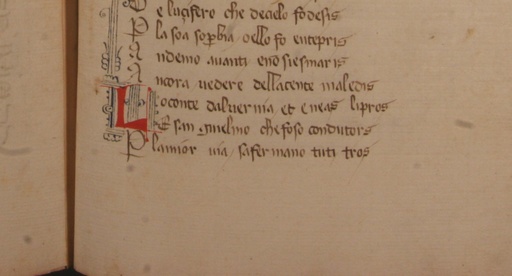 e lucifero che decielo fo desis
P la soa sopbia oello fo entepris
A ndemo auanti eno siesmaris
A ncora uedere dellacente maledis
L oconte daluernia et eneas lipros
E san gnielmo che foso condutors
P lamior uia safermano tuti tros